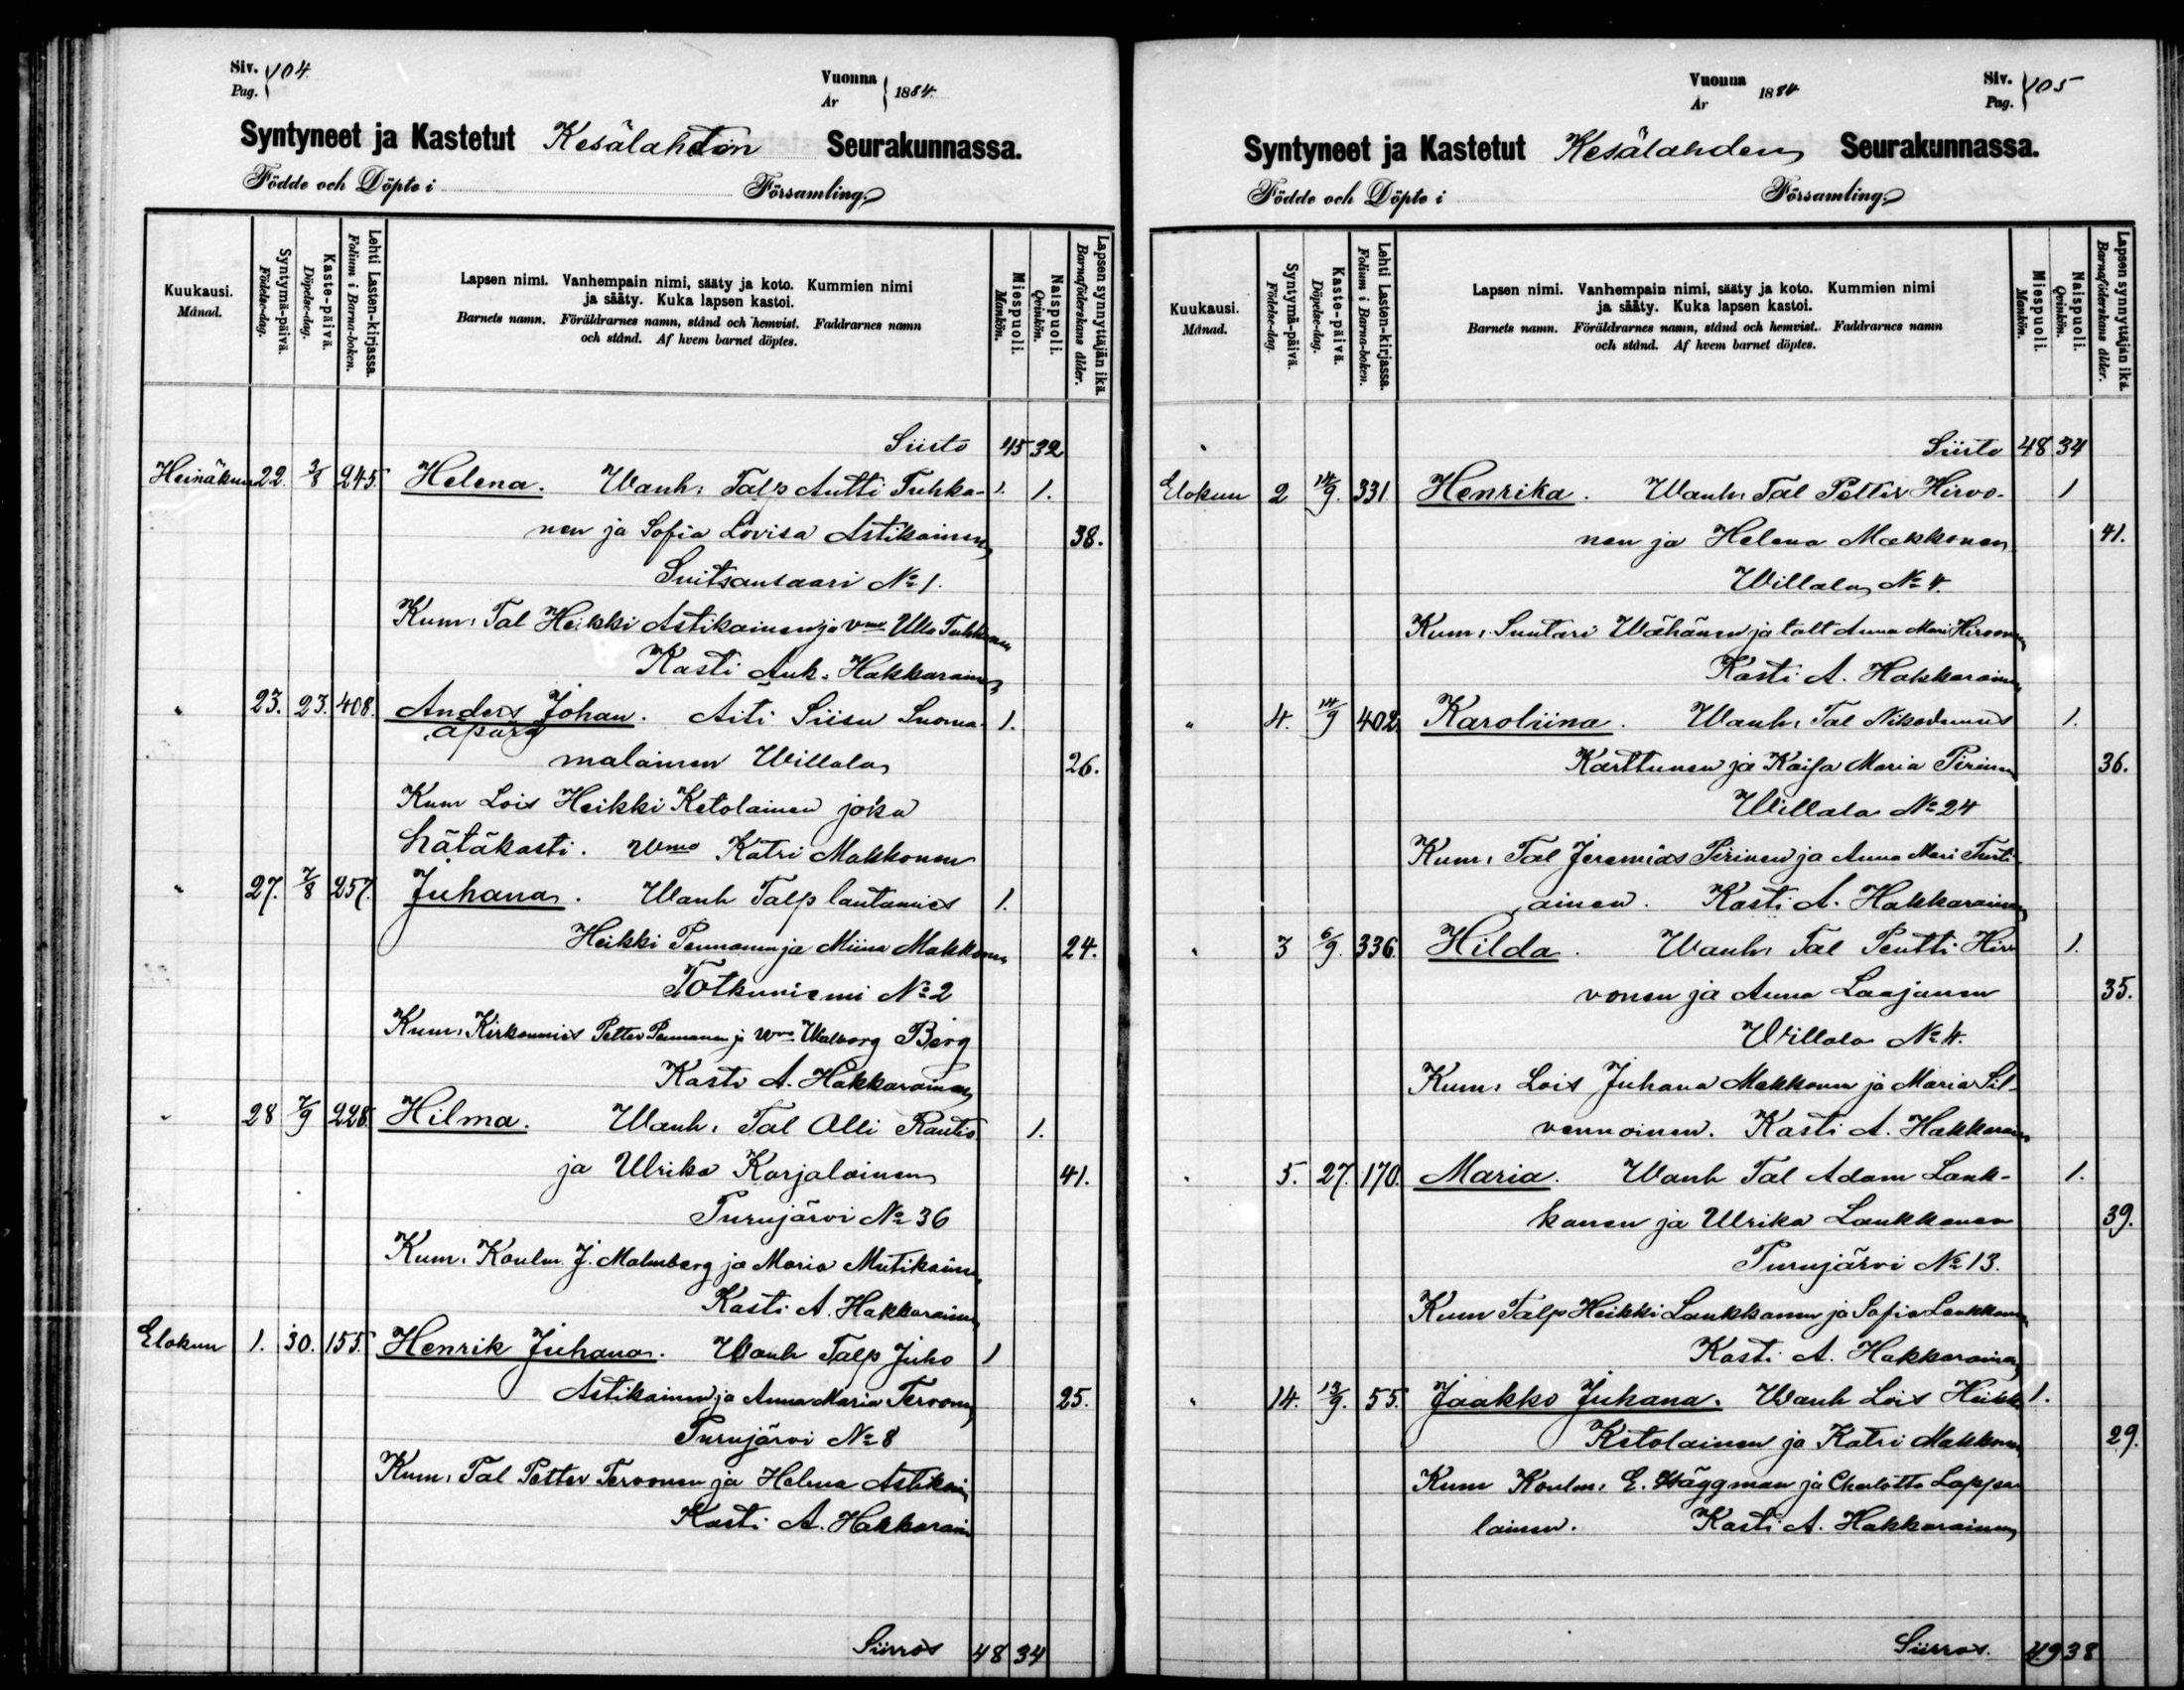 Siv. Pag. 104.
Vuonna År 1884.
Syntyneet ja Kastetut Kesälahden Seurakunnassa.
Födde och Döpte i Församling.
Kuukausi. Månad.
Syntymä-päivä. Födelse-dag.
Kaste-päivä. Döpelse-dag.
Lehti Lasten-kirjassa. Folium i Barna-boken.
Lapsen nimi. Vanhempain nimi, sääty ja koto. Kummien nimi
ja sääty. Kuka lapsen kastoi.
Barnets namn. Föräldrarnes namn, stånd och hemvist. Faddrarnes namn
och stånd. Af hvem barnet döptes.
Miespuoli. Mankön.
Naispuoli. Qvinkön.
Lapsen synnyttäjän ikä. Barnaföderskans ålder.
Siirto 45 32
Heinäkuu 22. 3/8 245. Helena. Wanh: Talp Antti Tuhka- 1.
nen ja Sofia Lovisa Astikainen 38.
Suitsansaari No 1.
Kum: Tal Heikki Astikainen ja vmo Ulla Tuhkanen
Kasti Ant. Hakkarainen
" 23. 23. 408. Anders Johan. Äiti Siisu Suoma- 1.
äpärä
malainen Willala 26.
Kum Lois Heikki Ketolainen joka
hätäkasti. Wmo Katri Makkonen
" 27. 7/8 257. Juhana. Wanh Talp lautamies 1.
Heikki Pennanen ja Miina Makkonen 24.
Totkuniemi No 2
Kum: Kirkonmies Petter Pennanen ja Wmo Walborg Berg
Kasti A. Hakkarainen
" 28 7/9 228. Hilma. Wanh: Tal Olli Rautio 1.
ja Ulrika Karjalainen 41.
Purujärvi No 36
Kum: Koulm. J. Malmberg ja Maria Mutikainen
Kasti A. Hakkarainen
Elokuu 1. 30. 155. Henrik Juhana. Wanh Talp Juho 1
Astikainen ja Anna Maria Tervonen 25.
Purujärvi No 8
Kum: Tal Petter Tervonen ja Helena Astikai
Kasti A. Hakkarain
Siirros 48 34
Vuonna År 1884
Siv. Pag. 105
Syntyneet ja Kastetut Kesälahden Seurakunnassa.
Födde och Döpte i Församling.
Kuukausi. Månad.
Syntymä-päivä. Födelse-dag.
Kaste-päivä. Döpelse-dag.
Lehti Lasten-kirjassa. Folium i Barna-boken.
Lapsen nimi. Vanhempain nimi, sääty ja koto. Kummien nimi
ja sääty. Kuka lapsen kastoi.
Barnets namn. Föräldrarnes namn, stånd och hemvist. Faddrarnes namn
och stånd. Af hvem barnet döptes.
Miespuoli. Mankön.
Naispuoli. Qvinkön.
Lapsen synnyttäjän ikä. Barnaföderskans ålder.
Siirto 48 34
Elokuu 2 14/9. 331. Henrika. Wanh: Tal Petter Hirvo- 1
nen ja Helena Makkonen 41.
Willala No 4.
Kum: Suutari Wähänen ja talt Anna Mari Hirvonen
Kasti A. Hakkarainen
" 4. 14/9 402 Karoliina. Wanh: Tal Nikodemus 1.
Karttunen ja Kaisa Maria Pirinen 36.
Willala No 24
Kum: Tal Jeremias Pirinen ja Anna Mari Turti-
ainen. Kasti A. Hakkarainen
" 3 6/9. 336. Hilda. Wanh: Tal Pentti Hir 1.
vonen ja Anna Laajanen 35.
Willala No 4.
Kum: Lois Juhana Makkonen ja Maria Sil-
vennoinen. Kasti A. Hakkarain
" 5. 27. 170. Maria. Wanh Tal Adam Lank- 1.
kanen ja Ulrika Lankkanen 39.
Purujärvi No 13.
Kum Talp Heikki Lankkanen ja Sofia Lankkanen
Kasti A. Hakkarainen
" 14. 55. Jaakko Juhana. Wanh Lois Heikki 1.
Ketolainen ja Katri Makkonen 29.
Kum Koulm: E. Häggman ja Charlotta Lappa
lainen. Kasti A. Hakkarainen
Siirros. 49 38